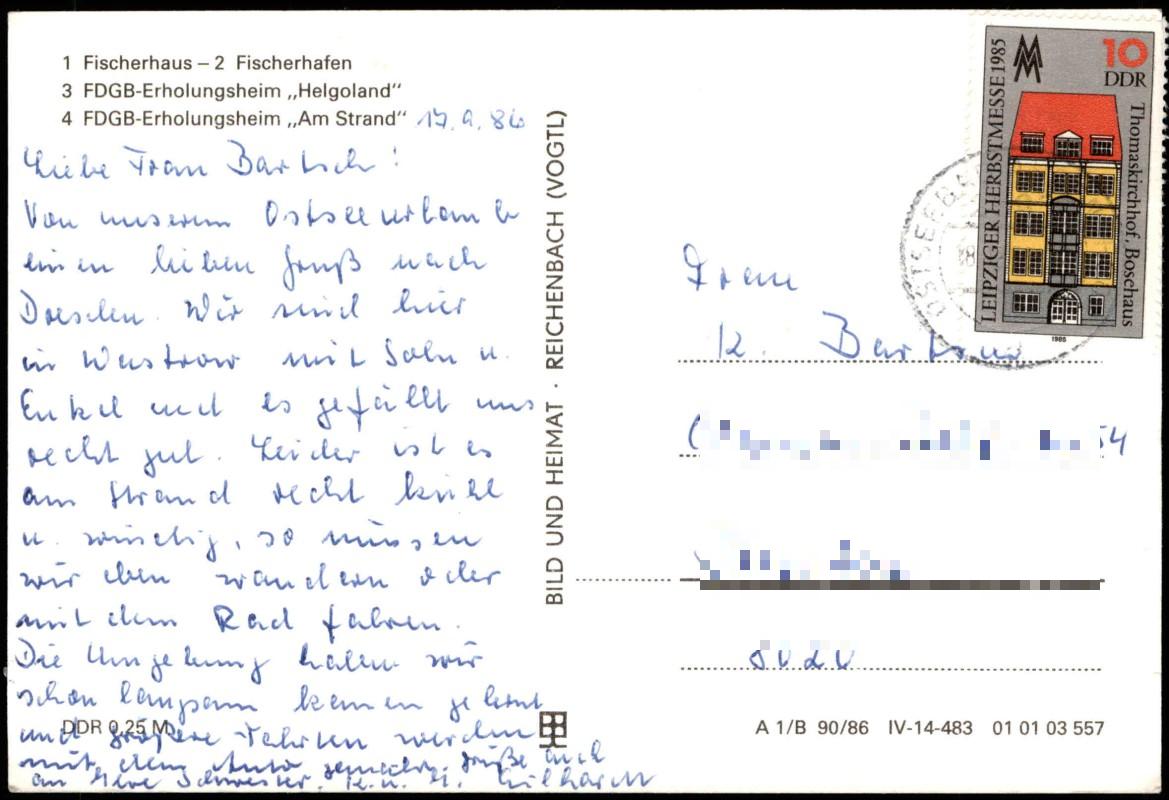 1 Fischerhaus – 2 Fischerhafen
3 FDGB-Erholungsheim „Helgoland“
4 FDGB-Erholungsheim „Am Strand“ 17.9.86
Liebe Frau Bartsch!
Von unserem Ostseeurlaub
einen lieben Gruß nach
Dresden. Wir sind hier
in Wustrow mit Sohn u.
Enkel und es gefällt uns
recht gut. Leider ist es
am Strand recht kühl
u. windig, so müssen
wir eben wandern oder
mit dem Rad fahren.
Die Umgebung haben wir
schon langsam kennen gelernt
und größere Fahrten werden
mit dem Auto gemacht. Grüße auch
an Ihre Schwester,
DDR 0,25 M
BILD UND HEIMAT · REICHENBACH (VOGTL)
LEIPZIGER HERBSTMESSE 1985
10
DDR
Thomaskirchhof, Boschaus
1985
OSTSEEBA
Frau
K. Bartsch
54
A 1/B 90/86 IV-14-483 01 01 03 557